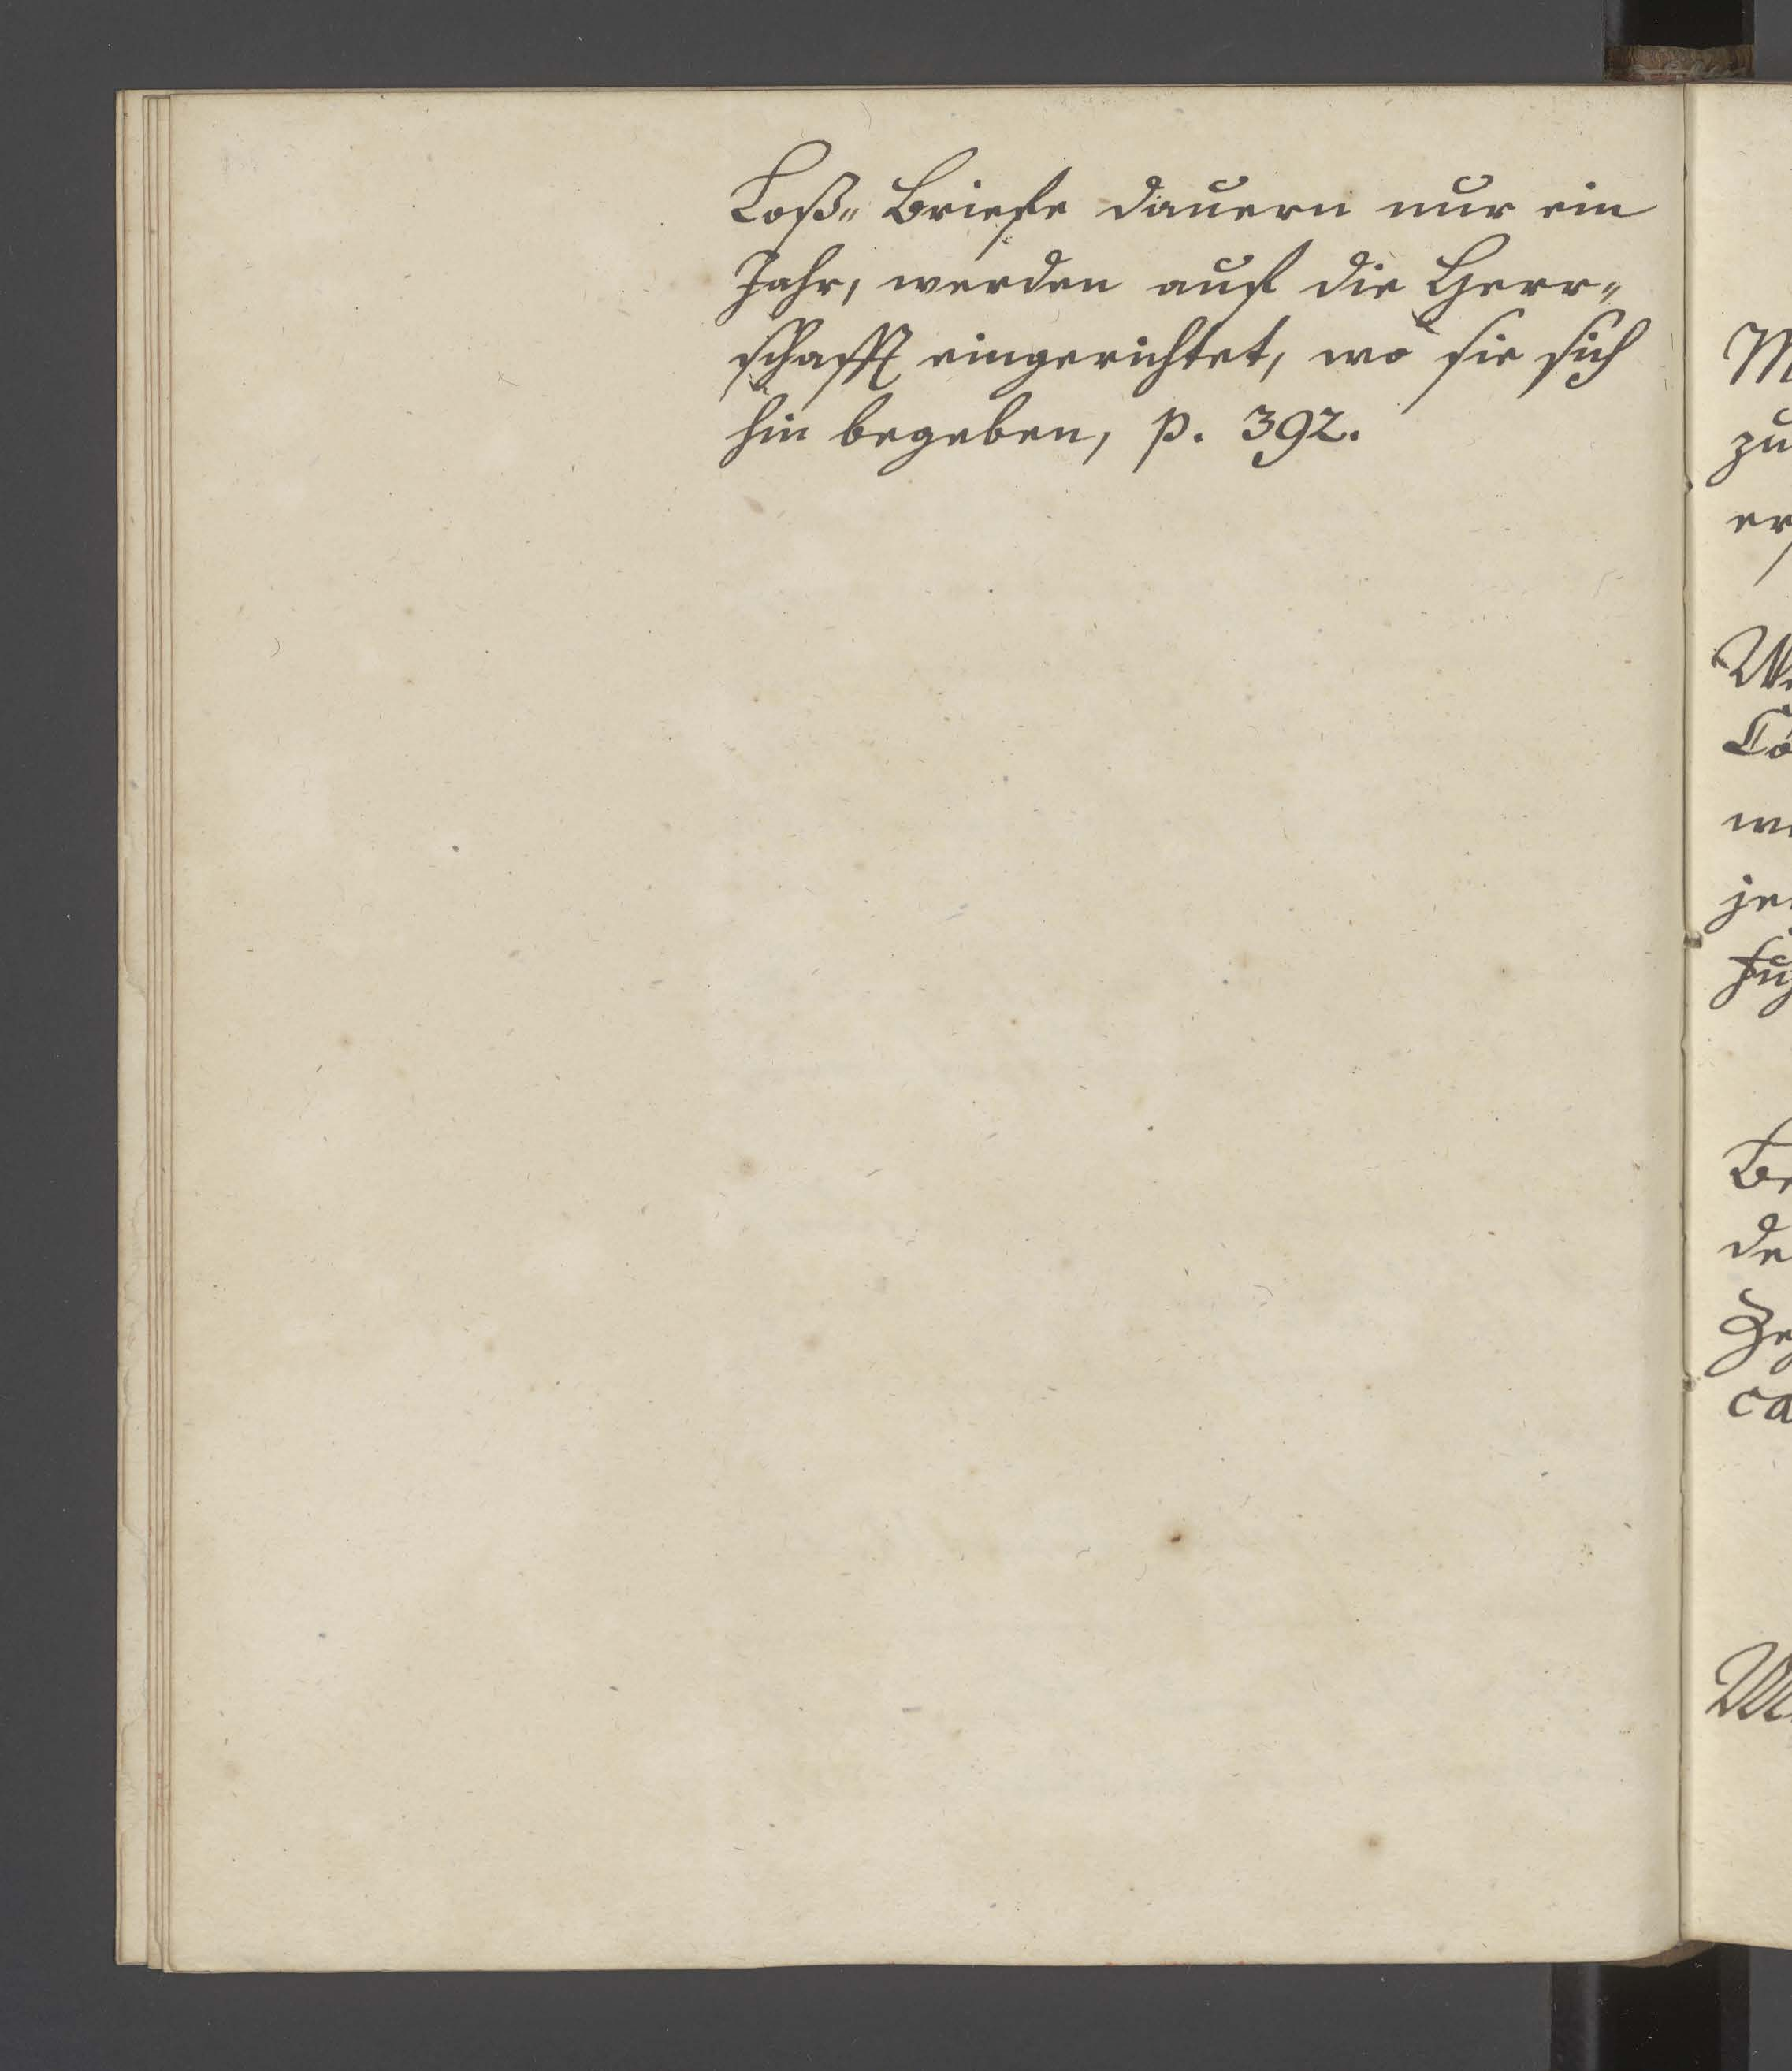 Loß„ Briefe dauern nur ein
Jahr, werden auf die Herr„
schafft eingerichtet, wo sie sich
hin begeben, p. 392.
M
zu
er
Co
je
Be
de
ca